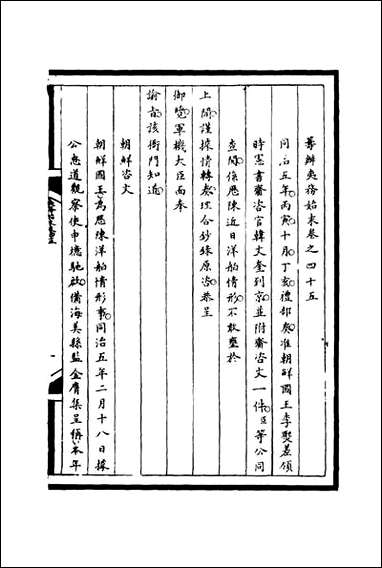 籌辦夷務始末卷之四十五
同治五年丙寅十月丁亥禮部奏准朝鮮國王李熙差領
時憲書齎咨官韓文奎到京並附齎咨文一件臣等公同
查閱係歷陳近日洋舶情形不敢壅於
上聞謹據情轉奏理合鈔錄原咨恭呈
御覽軍機大臣面奉
諭旨該衙門知道
朝鮮咨文
朝鮮國王為歷陳洋舶情形事同治五年二月十八日據
公忠道觀察使申檍馳啟備海美縣監金膺集呈稱本年